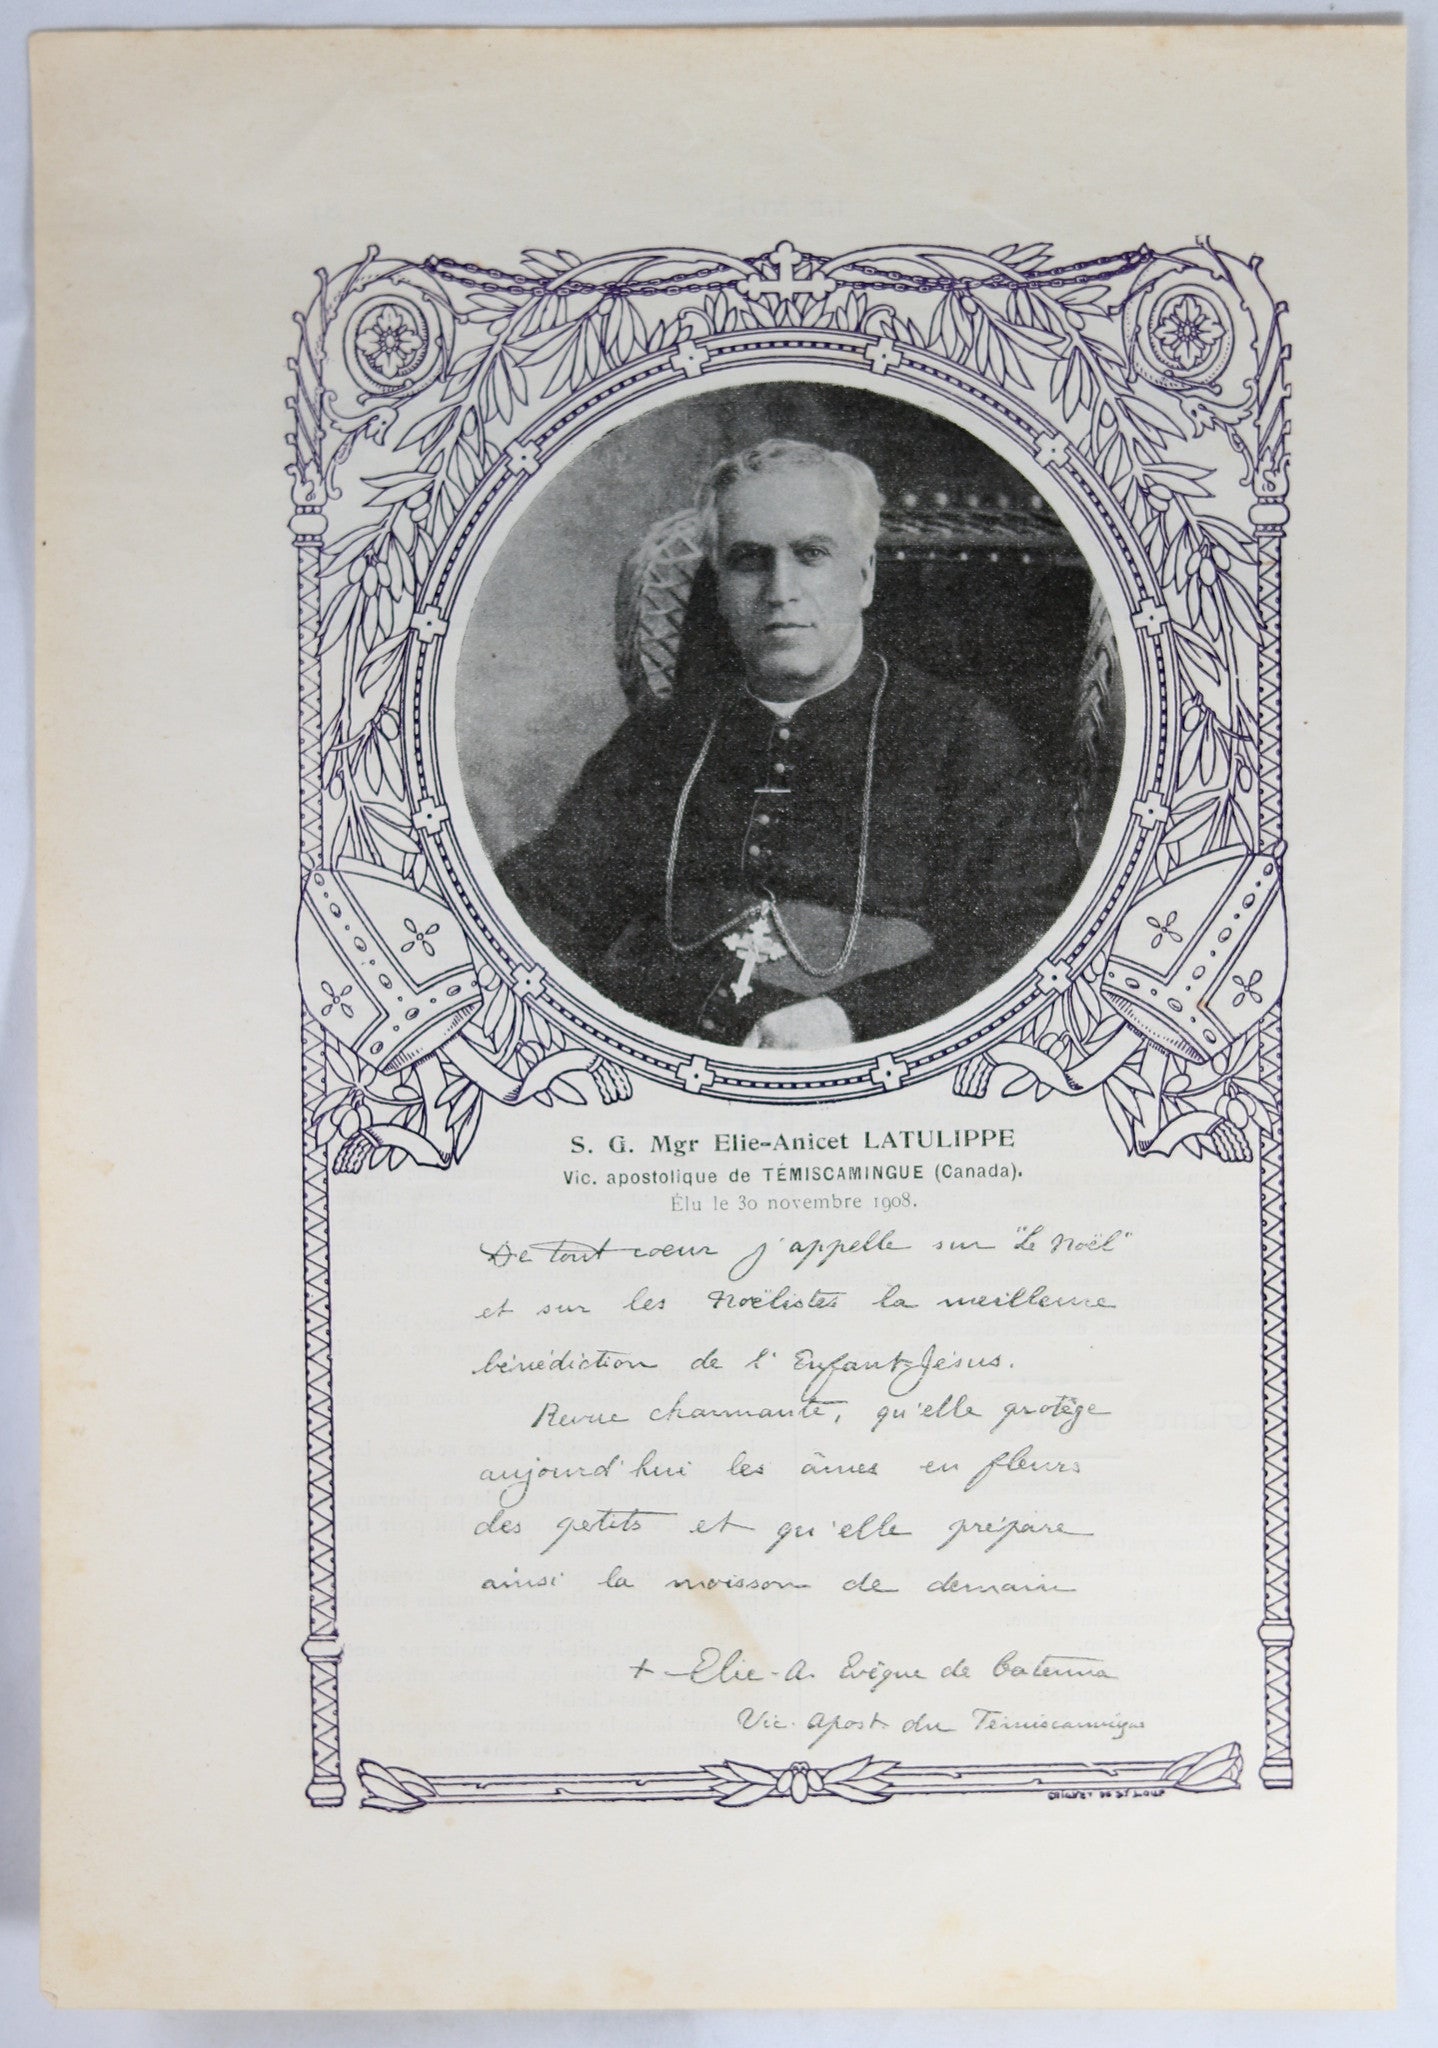 S. G. Mgr Elie-Anicet LATULIPPE
Vic. apostolique de TÉMISCAMINGUE (Canada).
Élu le 30 novembre 1908.
De tout coeur j'appelle sur "Le Noël"
et sur les Noëlistes la meilleure
bénédiction de l'Enfant-Jésus.
Revue charmante, qu'elle protège
aujourd'hui les âmes en fleurs
des petits et qu'elle prépare
ainsi la moisson de demain
+ Elie-A. Evêque de Catenna
Vic. Apost. du